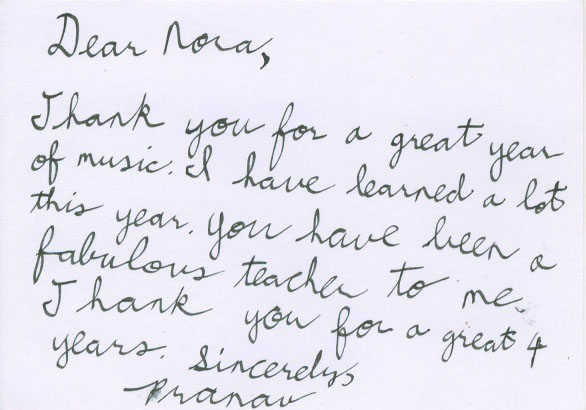 Dear Nora,
Thank you for a great year
of music. I have learned a lot
this year. You have been a
fabulous teacher to me.
Thank you for a great 4
years. Sincerely,
Pranav